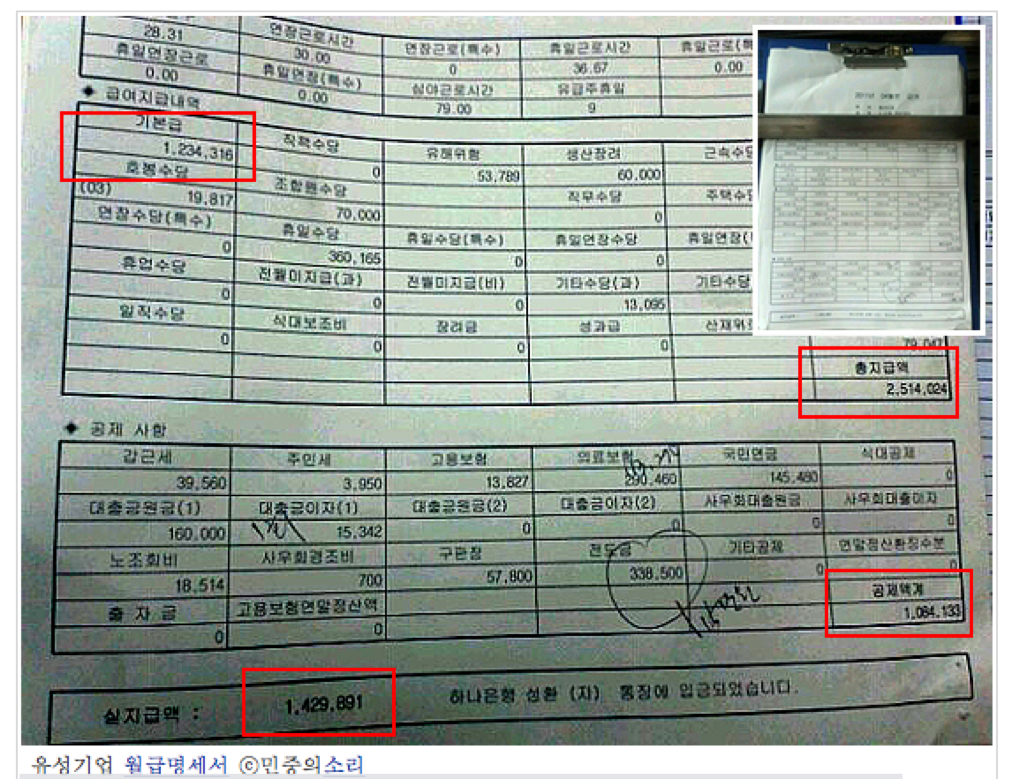 28.31
연장근로시간
30.00
연장근로(특수)
0
휴일근로시간
36.67
0.00
휴일연장근로
0.00
휴일연장(특수)
0.00
심야근로시간
79.00
유급주휴일
9
◆ 급여지급내역
기본급 직책수당 유해위험 생산장려
1,234,316 0 53,789 60,000
호봉수당 조합원수당 직무수당
(03) 19,817 70,000 0
연장수당(특수) 휴일수당 휴일수당(특수) 휴일연장수당
0 360,165 0 0
휴업수당 전월미지급(과) 전월미지급(비) 기타수당(과) 기타수당
0 0 0 13,095
일직수당 식대보조비 장려금 성과급
0 0 0 0 79,047
총지급액
2,514,024
◆ 공제 사항
갑근세 주민세 고용보험 의료보험 국민연금 식대공제
39,560 3,950 13,827 290,460 145,480 0
대출금원금(1) 대출금이자(1) 대출금원금(2) 대출금이자(2) 사우회대출원금 사우회대출이자
160,000 15,342 0 0 0 0
노조회비 사우회경조비 구판장 전도금 기타공제 연말정산환징수분
18,514 700 57,800 338,500 0 0
출 자 금 고용보험연말정산액 공제액계
0 0 1,084,133
실지급액 : 1,429,891 하나은행 성환 (지) 통장에 입금되었습니다.
유성기업 월급명세서 ⓒ민중의소리